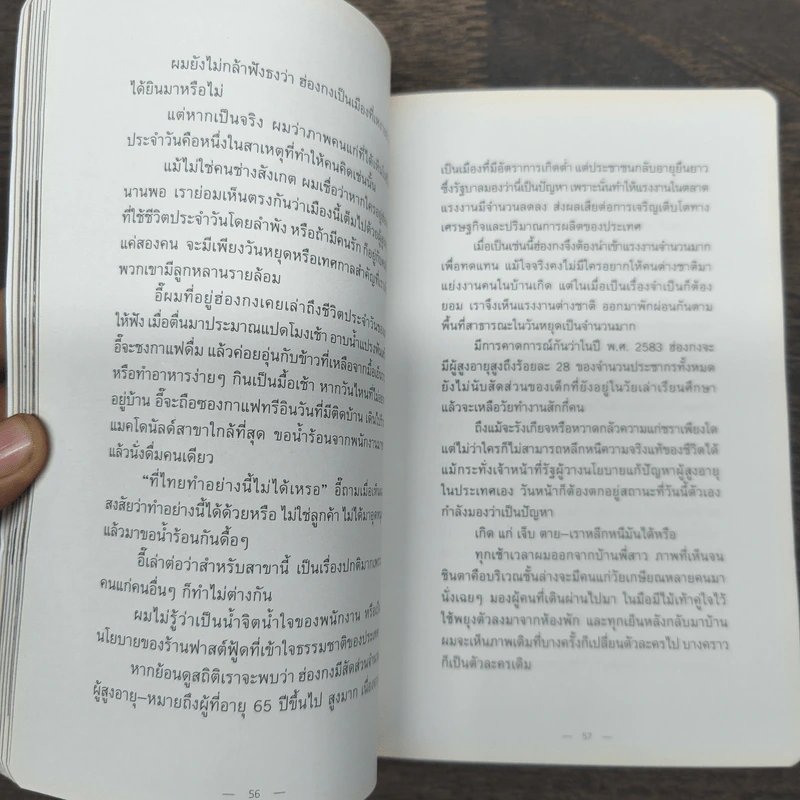 ผมยังไม่กล้าฟังธงว่า ฮ่องกงเป็นเมืองที่
ได้ยินมาหรือไม่
แต่หากเป็นจริง ผมว่าภาพคนแก่ที่ได้
ประจำวันคือหนึ่งในสาเหตุที่ทำให้คนคิดเช่นนั้น
แม้ไม่ใช่คนช่างสังเกต ผมเชื่อว่าหากใคร
นานพอ เราย่อมเห็นตรงกันว่าเมืองนี้เต็มไปด้วย
ที่ใช้ชีวิตประจำวันโดยลำพัง หรือถ้ามีคนรัก ก็อยู่กัน
แค่สองคน จะมีเพียงวันหยุดหรือเทศกาลสำคัญที่
พวกเขามีลูกหลานรายล้อม
อี๊ผมที่อยู่ฮ่องกงเคยเล่าถึงชีวิตประจำวันของ
ให้ฟัง เมื่อตื่นมาประมาณแปดโมงเช้า อาบน้ำแปรงฟัน
อี๊จะชงกาแฟดื่ม แล้วค่อยอุ่นกับข้าวที่เหลือจากมื้อ
หรือทำอาหารง่ายๆ กินเป็นมื้อเช้า หากวันไหนที่ไม่
อยู่บ้าน อี๊จะถือซองกาแฟทรีอินวันที่มีติดบ้าน เดินไป
แมคโดนัลด์สาขาใกล้ที่สุด ขอน้ำร้อนจากพนักงาน
แล้วนั่งดื่มคนเดียว
“ที่ไทยทำอย่างนี้ไม่ได้เหรอ” อี๊ถามเมื่อเห็น
สงสัยว่าทำอย่างนี้ได้ด้วยหรือ ไม่ใช่ลูกค้า ไม่ได้มา
แล้วมาขอน้ำร้อนกันดื้อๆ
อี๊เล่าต่อว่าสำหรับสาขานี้ เป็นเรื่องปกติมาก
คนแก่คนอื่นๆ ก็ทำไม่ต่างกัน
ผมไม่รู้ว่าเป็นน้ำจิตน้ำใจของพนักงาน หรือเป็น
นโยบายของร้านฟาสต์ฟู้ดที่เข้าใจธรรมชาติของประเทศ
หากย้อนดูสถิติเราจะพบว่า ฮ่องกงมีสัดส่วน
ผู้สูงอายุ—หมายถึงผู้ที่อายุ 65 ปีขึ้นไป สูงมาก
— 56 —
เป็นเมืองที่มีอัตราการเกิดต่ำ แต่ประชาชนกลับอายุยืนยาว
ซึ่งรัฐบาลมองว่านี้เป็นปัญหา เพราะนั่นทำให้แรงงานในตลาด
แรงงานมีจำนวนลดลง ส่งผลเสียต่อการเจริญเติบโตทาง
เศรษฐกิจและปริมาณการผลิตของประเทศ
เมื่อเป็นเช่นนี้ฮ่องกงจึงต้องนำเข้าแรงงานจำนวนมาก
เพื่อทดแทน แม้ใจจริงคงไม่มีใครอยากให้คนต่างชาติมา
แย่งงานคนในบ้านเกิด แต่ในเมื่อเป็นเรื่องจำเป็นก็ต้อง
ยอม เราจึงเห็นแรงงานต่างชาติ ออกมาพักผ่อนกันตาม
พื้นที่สาธารณะในวันหยุดเป็นจำนวนมาก
มีการคาดการณ์กันว่าในปี พ.ศ. 2583 ฮ่องกงจะ
มีผู้สูงอายุสูงถึงร้อยละ 28 ของจำนวนประชากรทั้งหมด
ยังไม่นับสัดส่วนของเด็กที่ยังอยู่ในวัยเล่าเรียนศึกษา
แล้วจะเหลือวัยทำงานสักกี่คน
ถึงแม้จะรังเกียจหรือหวาดกลัวความแก่ชราเพียงใด
แต่ไม่ว่าใครก็ไม่สามารถหลีกหนีความจริงแท้ของชีวิตได้
แม้กระทั่งเจ้าหน้าที่รัฐผู้วางนโยบายแก้ปัญหาผู้สูงอายุ
ในประเทศเอง วันหน้าก็ต้องตกอยู่สถานะที่วันนี้ตัวเอง
กำลังมองว่าเป็นปัญหา
เกิด แก่ เจ็บ ตาย—เราหลีกหนีมันได้หรือ
ทุกเช้าเวลาผมออกจากบ้านพี่สาว ภาพที่เห็นจน
ชินตาคือบริเวณชั้นล่างจะมีคนแก่วัยเกษียณหลายคนมา
นั่งเฉยๆ มองผู้คนที่เดินผ่านไปมา ในมือมีไม้เท้าคู่ใจไว้
ใช้พยุงตัวลงมาจากห้องพัก และทุกเย็นหลังกลับมาบ้าน
ผมจะเห็นภาพเดิมที่บางครั้งก็เปลี่ยนตัวละครไป บางคราว
ก็เป็นตัวละครเดิม
— 57 —